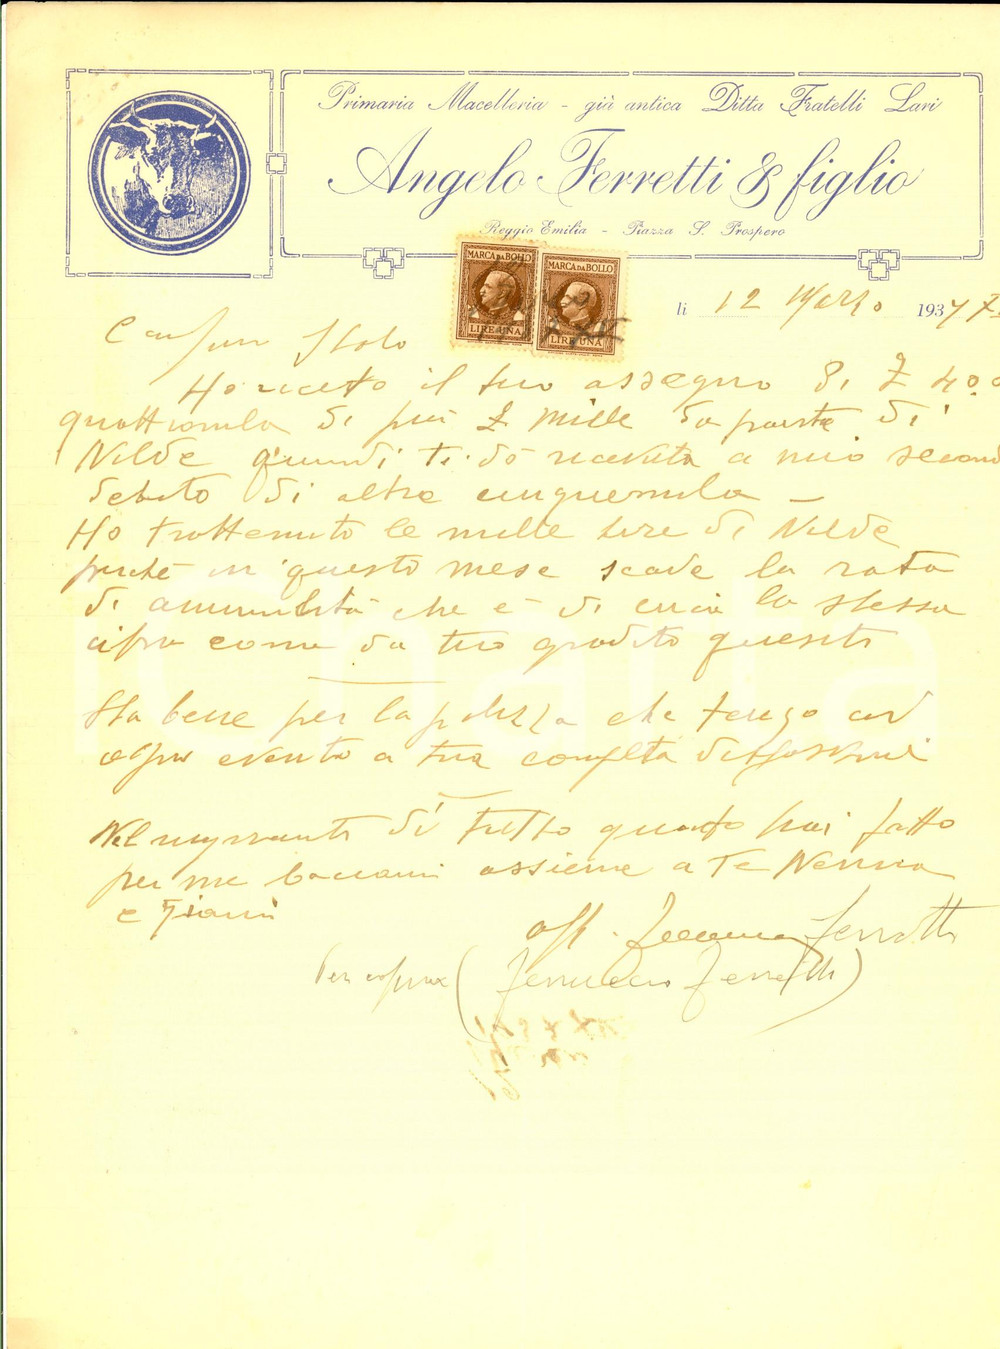 Primaria Macelleria - già antica Ditta Fratelli Lari
Angelo Ferretti & figlio
Reggio Emilia - Piazza S. Prospero
MARCA DA BOLLO
LIRE UNA
MARCA DA BOLLO
LIRE UNA
li 12 Marzo 1937
Italo
Ho riceuto il tuo assegno di £ 4000
quattromila di più £ mille da parte di
Nilde quindi ti dò ricevuta a mio secondo
debito di altre cinquemila —
Ho trattenuto le mille lire di Nilde
perchè in questo mese scade la rata
di che è di circa la stessa
cifra come da tuo gradito
Sta bene per la polizza che tengo ad
ogni evento a tua completa
Nel di tutto quanto hai fatto
per me baciami assieme a Te Nerina
e Gianni
aff. Ferretti
Per (Ferruccio Ferretti)